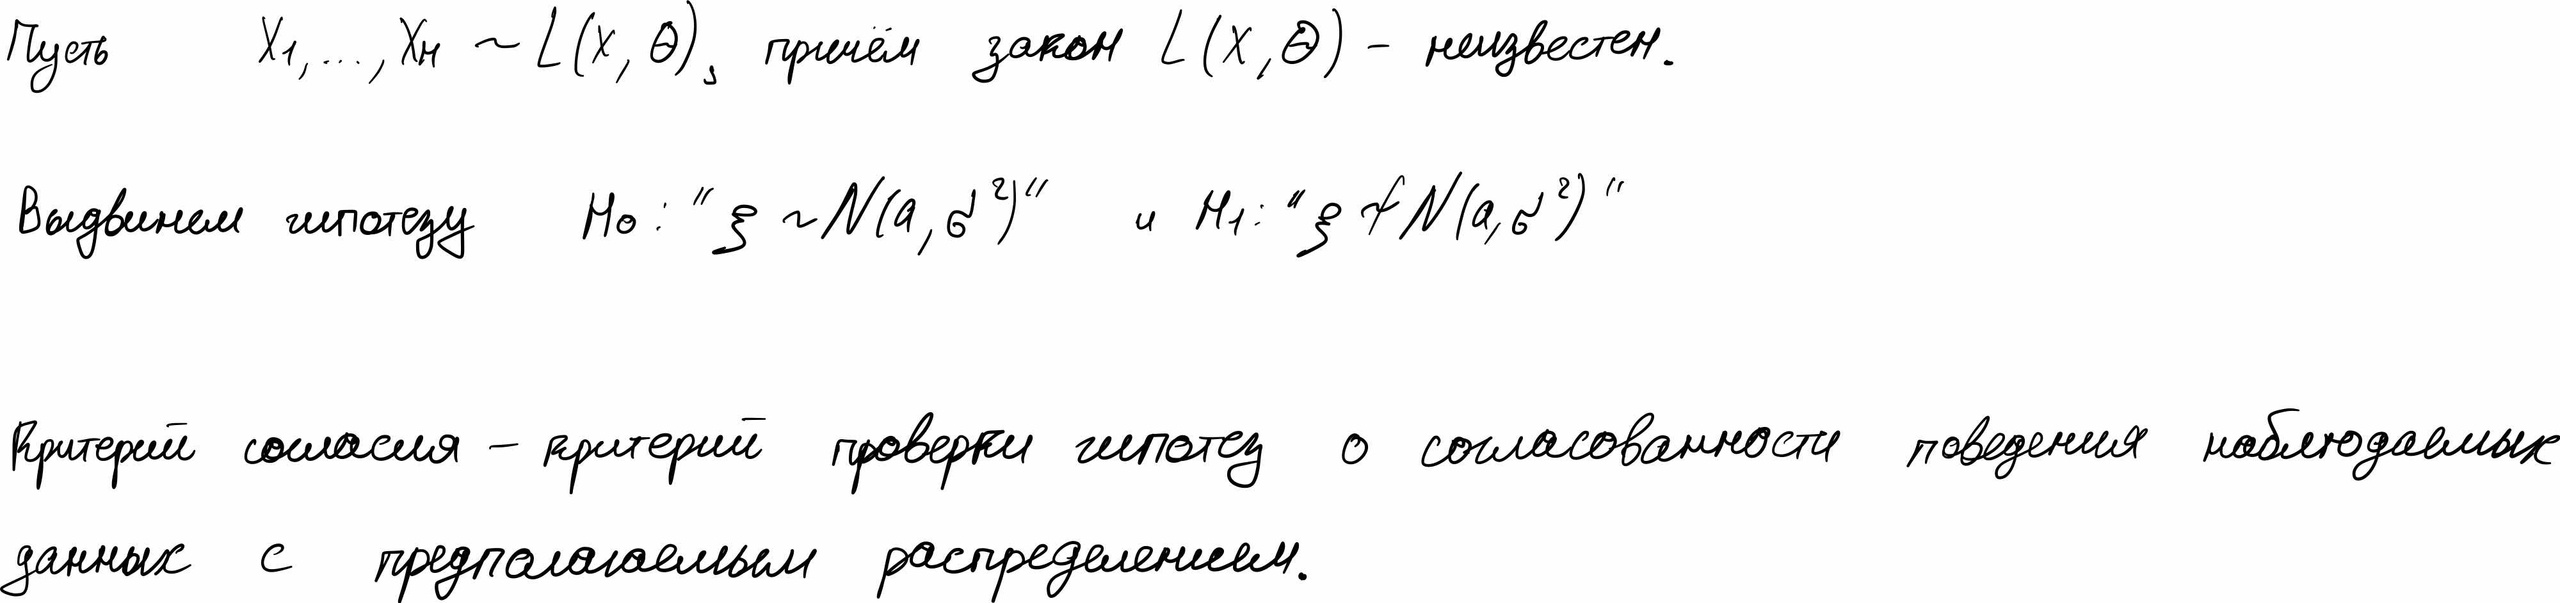 Пусть X1,...,Xn ~ L(X, Θ), причём закон L(X, Θ) - неизвестен.
Выдвинем гипотезу H0: "ξ ~ N(a, σ²)" и H1: "ξ ≁ N(a, σ²)"
Критерий согласия – критерий проверки гипотез о согласованности поведения наблюдаемых
данных с предполагаемым распределением.